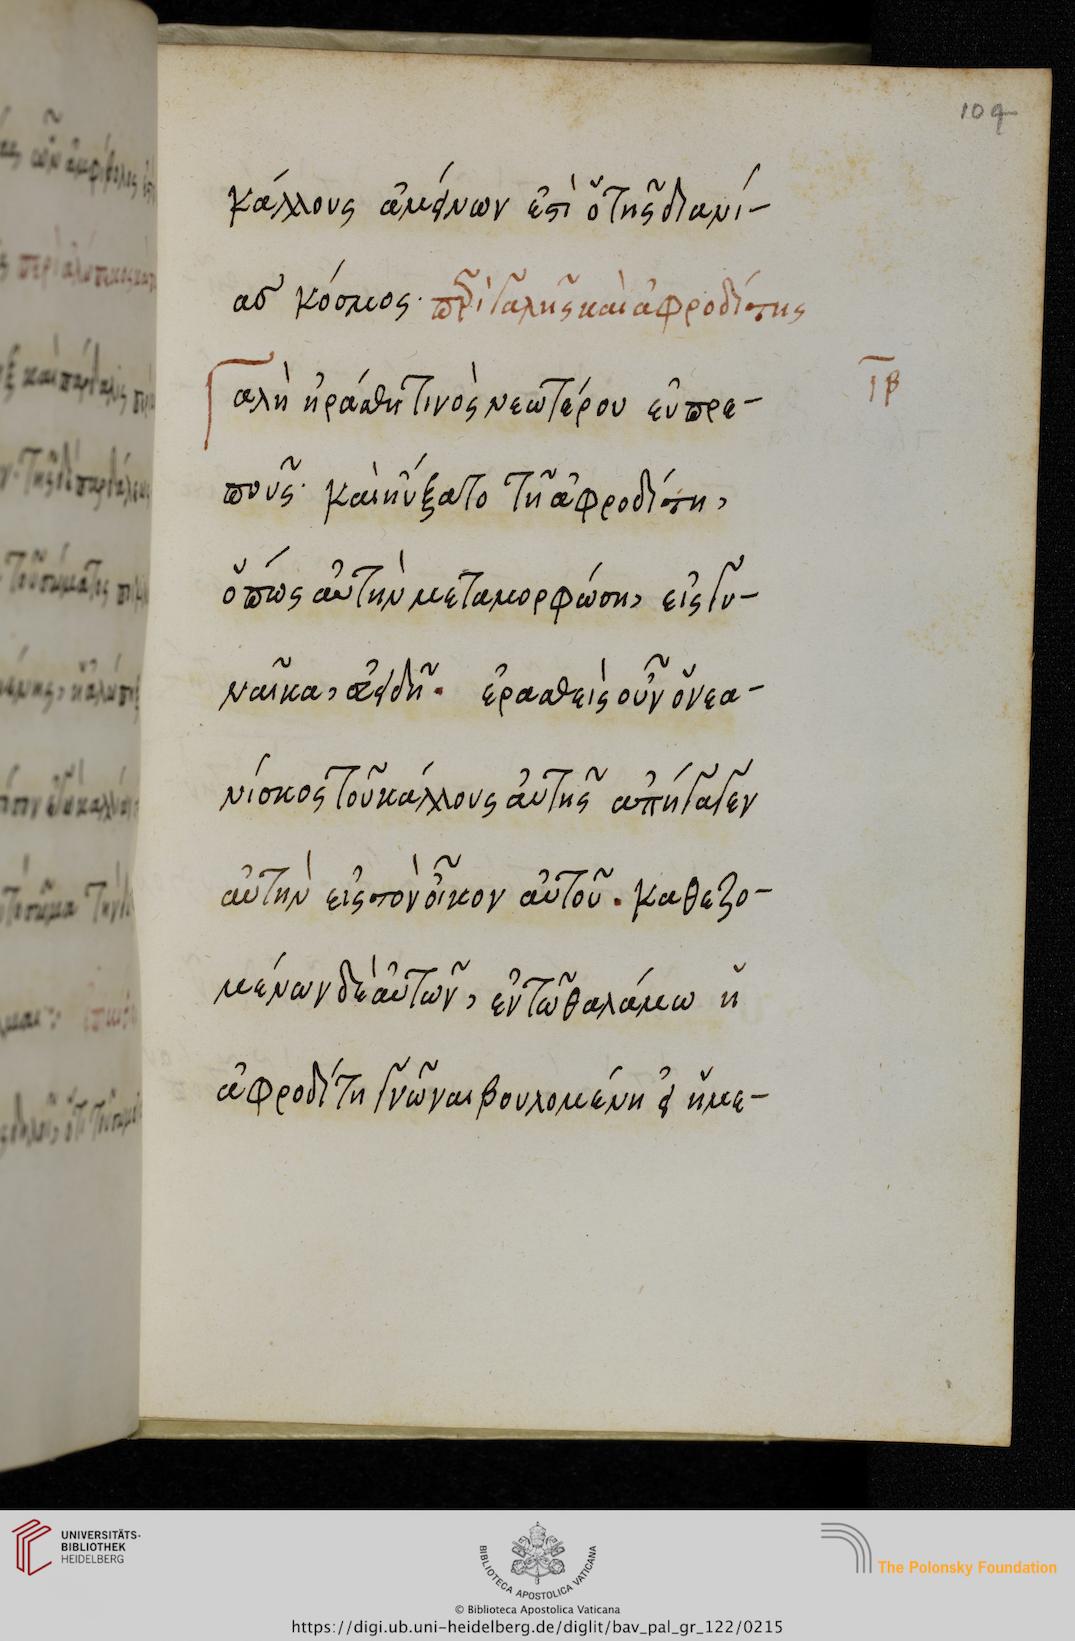 109
κάλλους ἀμείνων ἐστὶ ὁ τῆς διανοί-
ας κόσμος· περὶ γαλῆς καὶ ἀφροδίτης
Γαλὴ ἠράσθη τινὸς νεωτέρου εὐπρε-
ποῦς· καὶ ηὔξατο τῆ ἀφροδίτη,
ὅπως αὐτὴν μεταμορφώση, εἰς γυ-
ναῖκα, ἀειδῆ. ἐρασθεὶς οὖν ὁ νεα-
νίσκος τοῦ κάλλους αὐτῆς ἀπήγαγεν
αὐτὴν εἰς τὸν οἶκον αὐτοῦ. καθεζο-
μένων δὲ αὐτῶν, ἐν τῶ θαλάμω ἡ
ἀφροδίτη γνῶναι βουλομένη εἰ ἡ με-
UNIVERSITÄTS-
BIBLIOTHEK
HEIDELBERG
BIBLIOTECA APOSTOLICA VATICANA
The Polonsky Foundation
© Biblioteca Apostolica Vaticana
https://digi.ub.uni-heidelberg.de/diglit/bav_pal_gr_122/0215